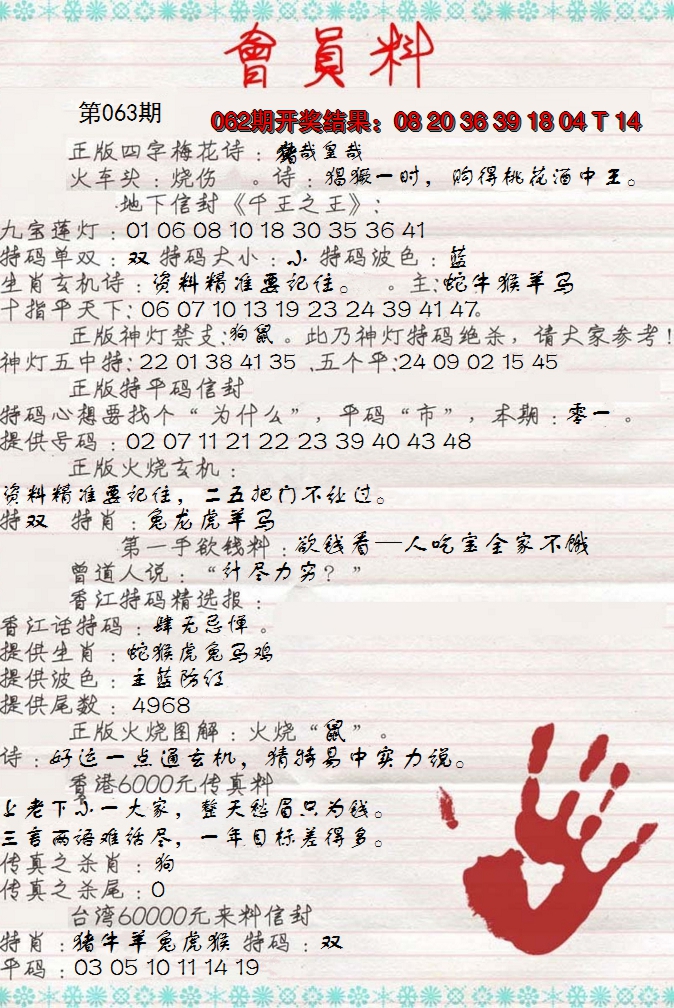 會員料
第063期
062期开奖结果：08 20 36 39 18 04 T 14
正版四字梅花诗：哉皇哉
火车头：烧伤 。诗：猖獗一时，购得桃花酒中王。
地下信封《千王之王》：
九宝莲灯：01 06 08 10 18 30 35 36 41
特码单双：双 特码大小：小 特码波色：蓝
生肖玄机诗：资料精准要记住。 。主:蛇牛猴羊马
十指平天下: 06 07 10 13 19 23 24 39 41 47。
正版神灯禁支:狗鼠。此乃神灯特码绝杀，请大家参考!
神灯五中特: 22 01 38 41 35 、五个平:24 09 02 15 45
正版特平码信封
特码心想要找个“为什么”，平码“市”，本期：零一 。
提供号码：02 07 11 21 22 23 39 40 43 48
正版火烧玄机：
资料精准要记住，二五把门不红过。
特双 特肖：兔龙虎羊马
第一手欲钱料：欲钱看一人吃宝全家不饿
曾道人说：“计尽力穷？”
香江特码精选报：
香江话特码：肆无忌惮。
提供生肖：蛇猴虎兔马鸡
提供波色：主蓝防红
提供尾数：4968
正版火烧图解：火烧“鼠”。
诗：好运一点通玄机，猜特易中实力说。
香港6000元传真料
上老下小一大家，整天愁眉只为钱。
三言两语难话尽，一年目标差得多。
传真之杀肖：狗
传真之杀尾：0
台湾60000元来料信封
特肖：猪牛羊兔虎猴 特码：双
平码：03 05 10 11 14 19